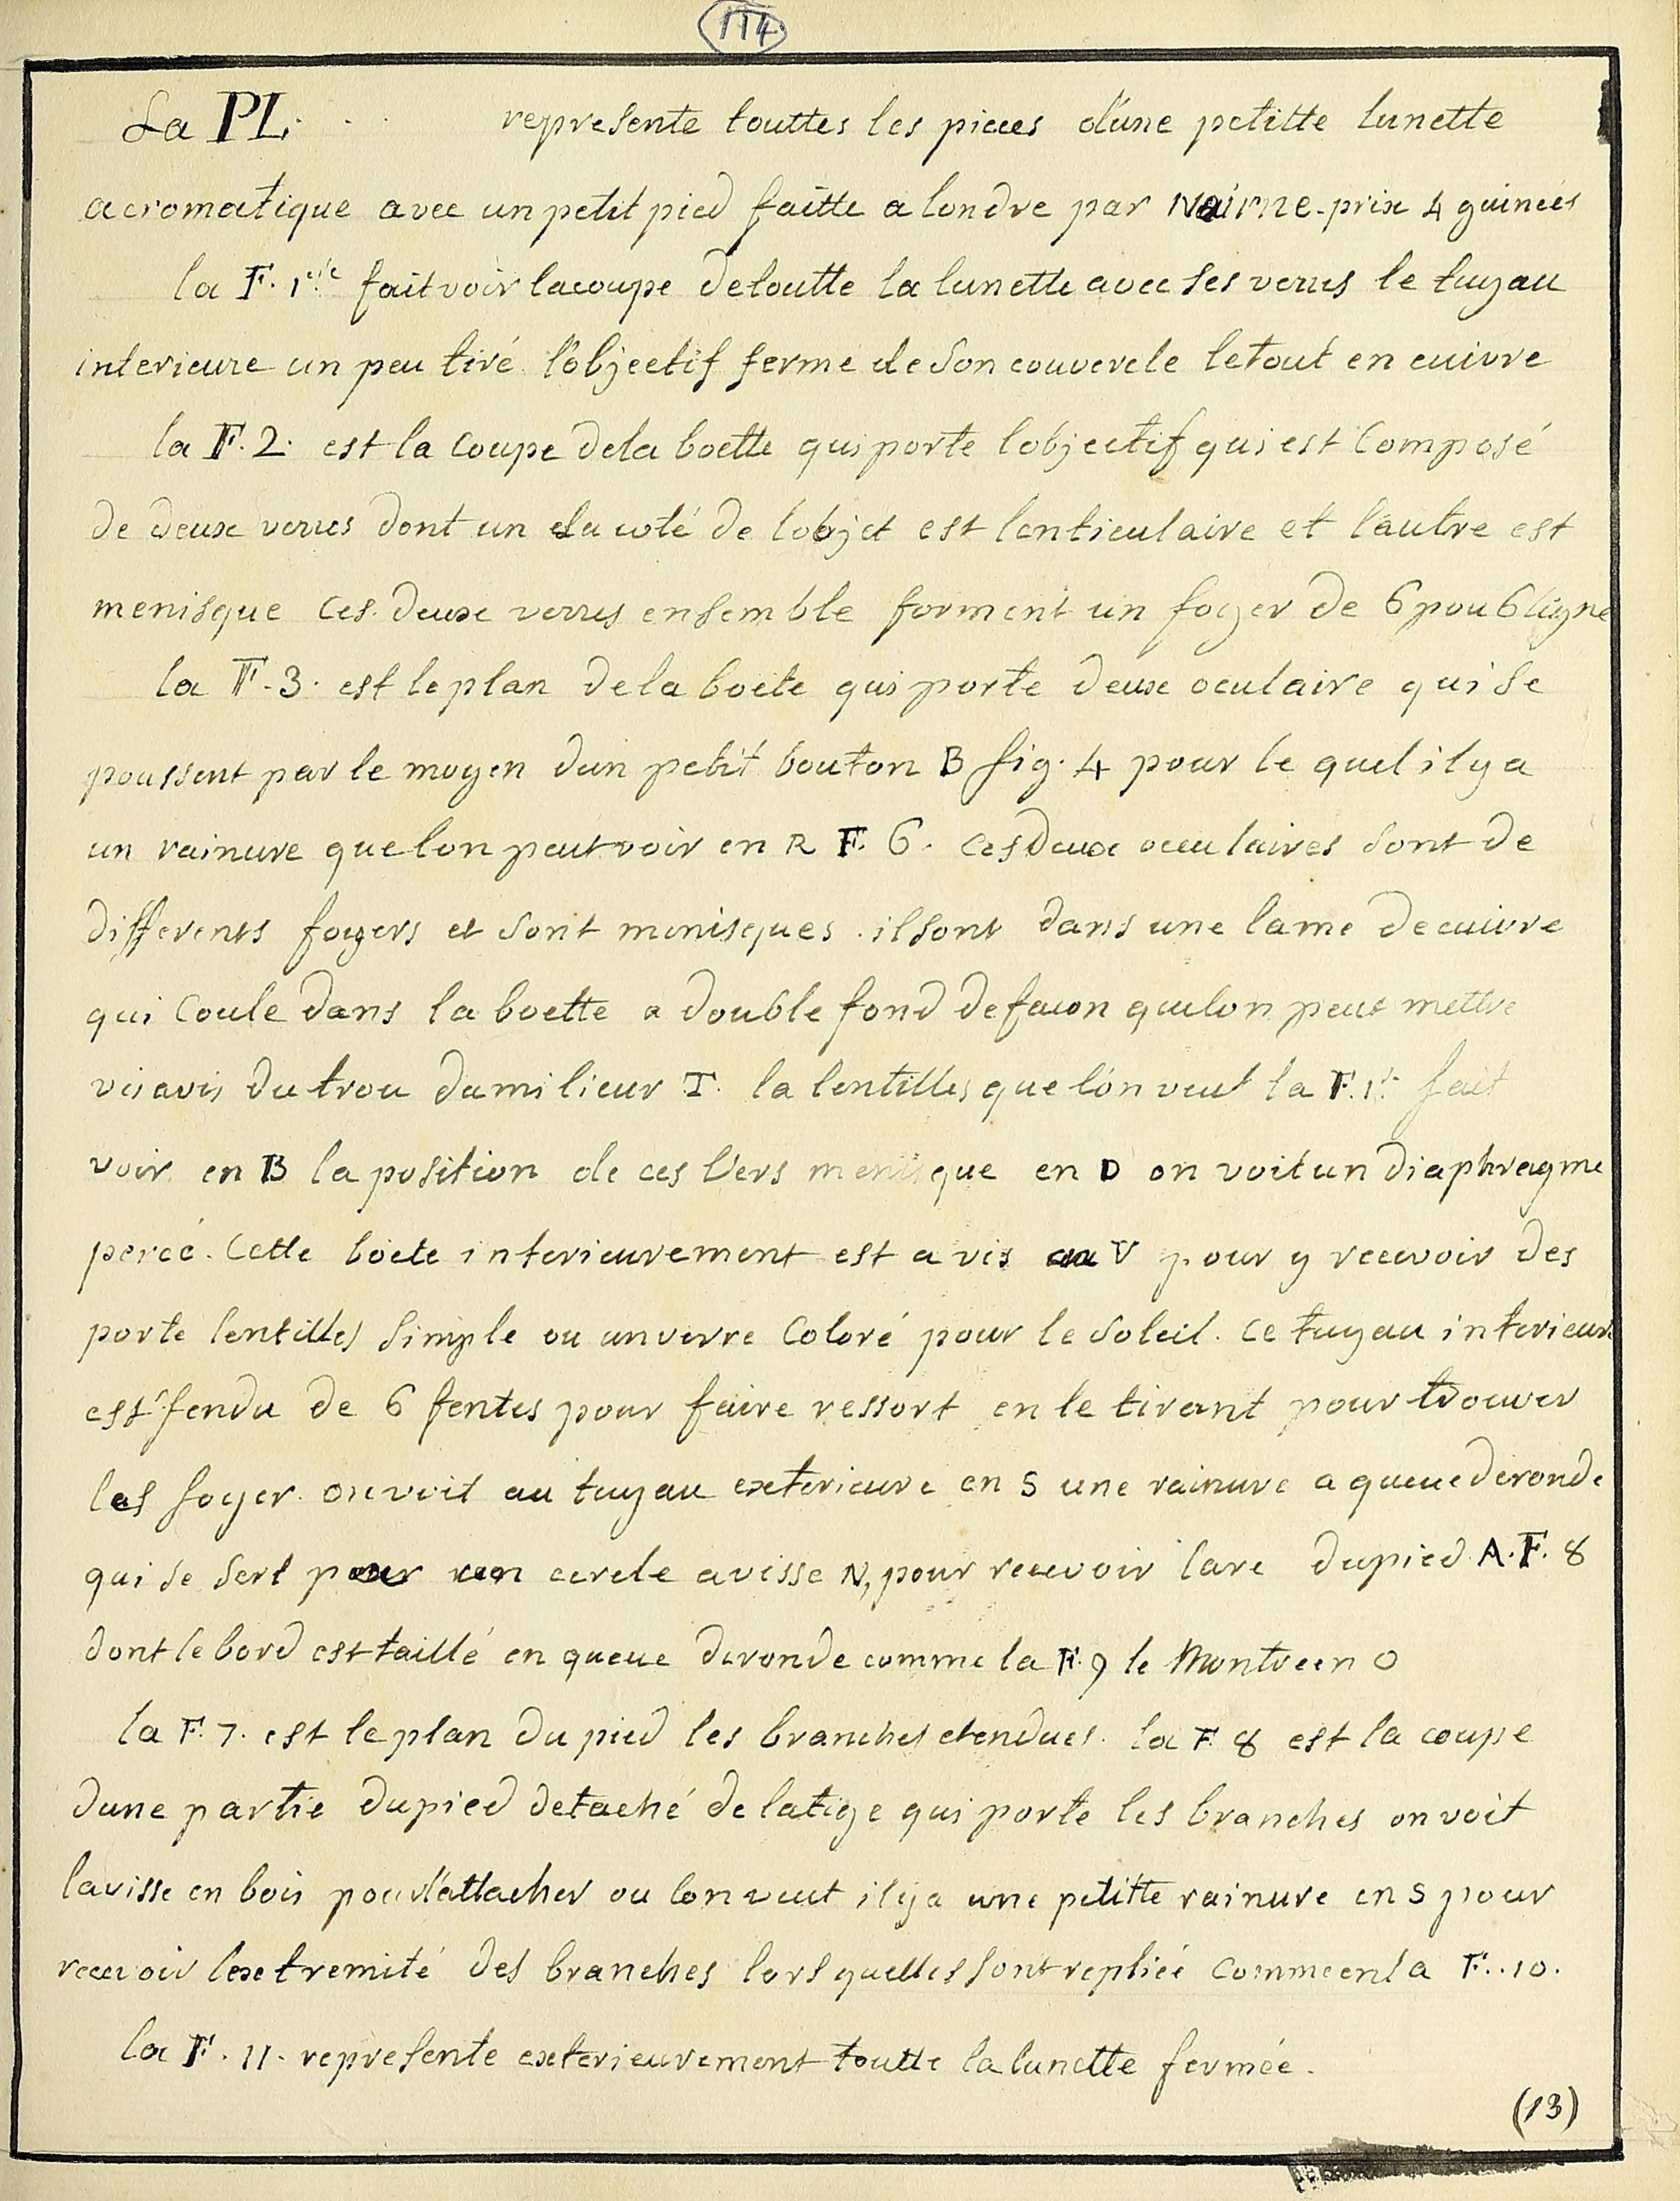 114
La PL. . . represente touttes les pieces d'une petitte lunette
acromatique avec un petit pied faitte a londre par Nairne - prix 4 guinées
la F. 1.ere fait voir la coupe de toutte la lunette avec ses verres le tuyau
interieure un peu tiré l'objectif fermé de son couvercle le tout en cuivre
la F. 2. est la coupe de la boette qui porte lobjectif qui est composé
de deux verres dont un du coté de lobjet est lenticulaire et l'autre est
menisque ces deux verres ensemble forment un foyer de 6 pou 6 ligne
la F. 3. est le plan de la boete qui porte deux oculaire qui se
poussent par le moyen dun petit bouton B fig. 4 pour le quel il y a
un rainure que lon peut voir en R F. 6. ces deux occulaires sont de
differents foyers et sont menisques . il sont dans une lame de cuivre
qui coule dans la boette a double fond de facon quelon peut mettre
vis avis du trou du milieur T. la lentilles que l'on veut la F. 1.e fait
voir en B la position de ces vers menisque en D on voit un diaphragme
percé. Cette boete interieurement est a vis en V pour y recevoir des
porte lentilles simple ou un verre coloré pour le soleil. ce tuyau interieur
est fendu de 6 fentes pour faire ressort en le tirant pour trouver
les foyer. on voit au tuyau exterieure en S une rainure a queue deronde
qui se sert par un cercle a visse N, pour recevoir larc du pied A. F. 8
dont le bord est taillé en queue deronde comme la F. 9 le montre en O
la F. 7. est le plan du pied les branches etendues. la F. 8 est la coupe
dune partie du pied detaché de la tige qui porte les branches on voit
la visse en bois pour l'attacher ou lon veut il y a une petitte rainure en S pour
recevoir lextremité des branches lors quelles sont repliée comme en la F. 10.
la F. 11. represente exterieurement toutte la lunette fermée.
(13)